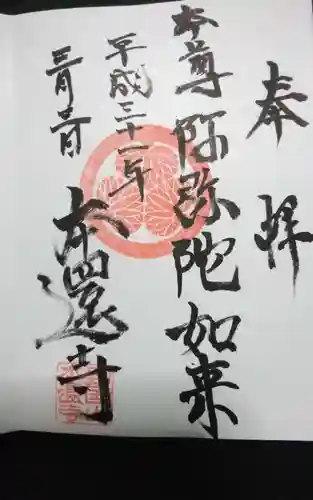 奉拝
本尊 阿弥陀如来
平成三十一年
三月
本還寺